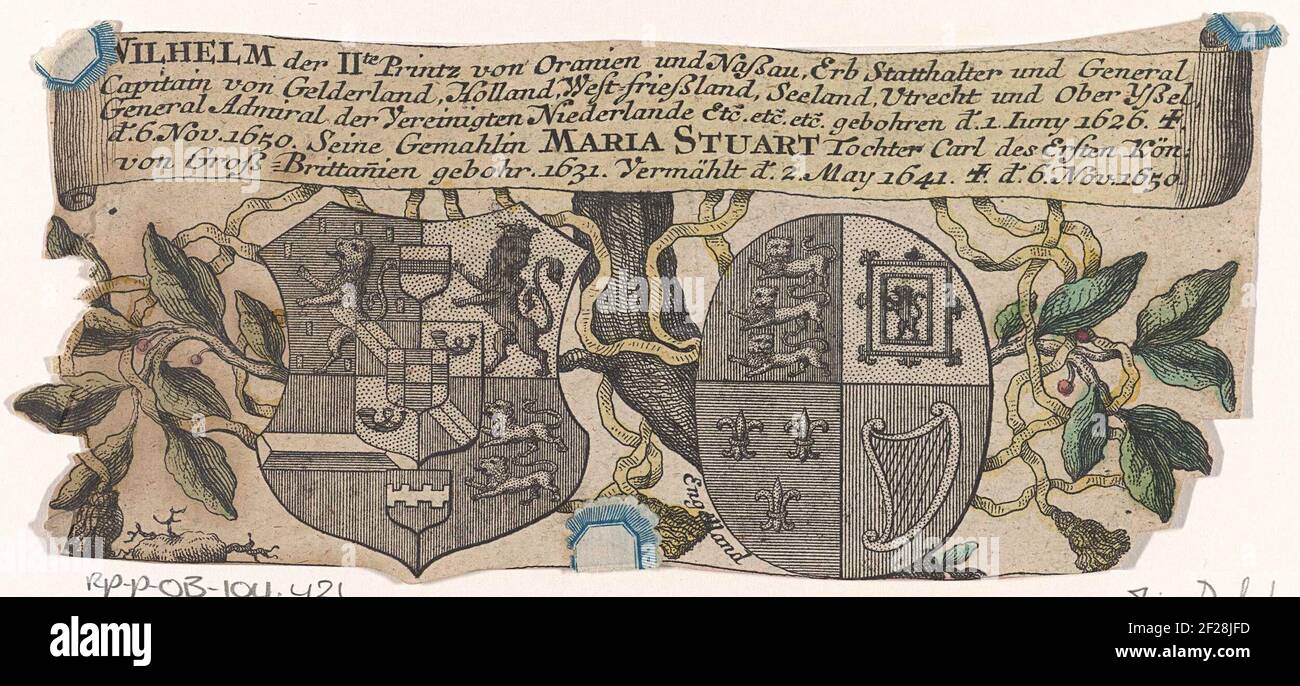 WILHELM der IIte Printz von Oranien und Naßau, Erb Statthalter und General
Capitain von Gelderland, Holland, West-frießland, Seeland, Utrecht und Ober Yßel,
General Admiral der Vereinigten Niederlande Etc̃. etc̃. etc̃. gebohren đ. 1. Iuny 1626. ✝.
đ. 6. Nov. 1650. Seine Gemahlin MARIA STUART Tochter Carl des Ersten Kön:
von Groß=Brittañien gebohr. 1631. Vermählt đ. 2. May 1641. ✝ đ. 6. Nov. 1650.
Engelland
RP-P-OB-104.421
alamy
Image ID: 2F28JFD
www.alamy.com